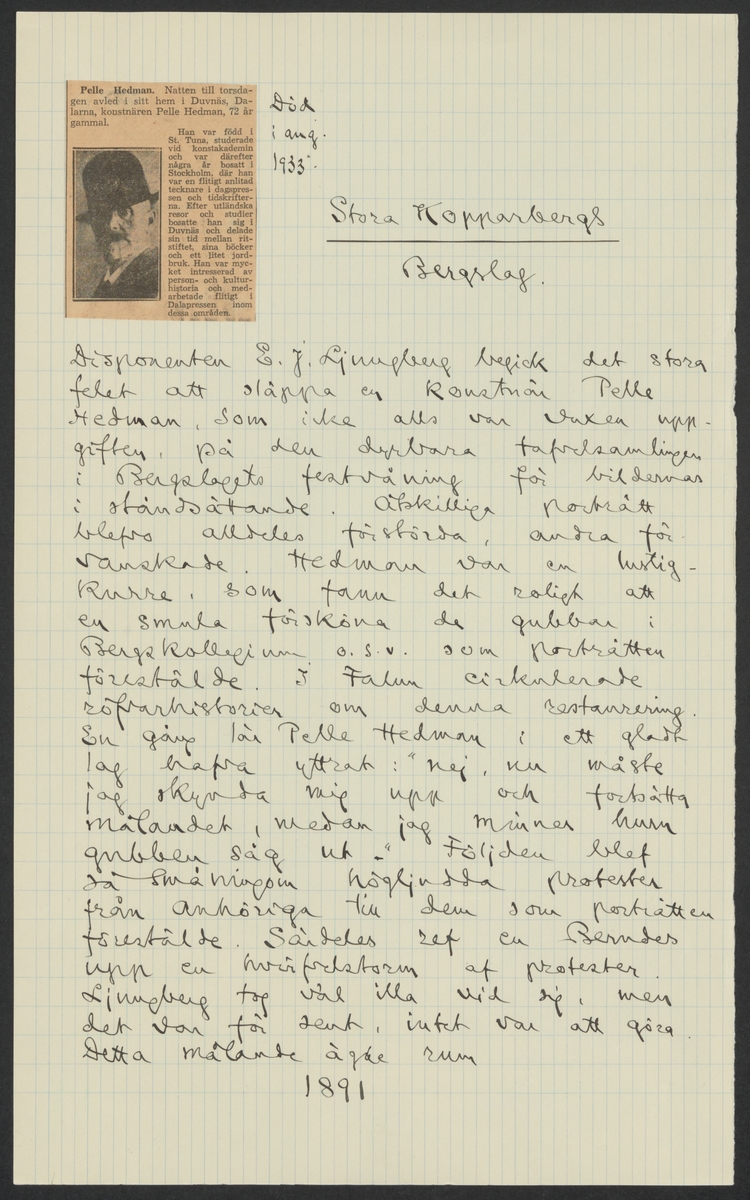 Pelle Hedman. Natten till torsda-
gen avled i sitt hem i Duvnäs, Da-
larna, konstnären Pelle Hedman, 72 år
gammal.
Han var född i
St. Tuna, studerade
vid konstakademin
och var därefter
några år bosatt i
Stockholm, där han
var en flitigt anlitad
tecknare i dagspres-
sen och tidskrifter-
na. Efter utländska
resor och studier
bosatte han sig i
Duvnäs och delade
sin tid mellan rit-
stiftet, sina böcker
och ett litet jord-
bruk. Han var myc-
ket intresserad av
person- och kultur-
historia och med-
arbetade flitigt i
Dalapressen inom
dessa områden.
Död
i aug.
1933.
Stora Kopparbergs
Bergslag.
Disponenten E. J. Ljungberg begick det stora
felet att släppa en konstnär Pelle
Hedman, som icke alls var vuxen upp-
giften, på den dyrbara tafvelsamlingen
i Bergslagets festvåning för bildernas
i ståndsättande. Åtskilliga porträtt
blefvo alldeles förstörda, andra för-
vanskade. Hedman var en lustig-
kurre, som fann det roligt att
en smula försköna de gubbar i
Bergskollegium o.s.v. som porträtten
förestälde. I Falun cirkulerade
röfvarhistorier om denna restaurering.
En gång lär Pelle Hedman i ett gladt
lag hafva yttrat: "nej, nu måste
jag skynda mig upp och fortsätta
målandet, medan jag minnes hum
gubben såg ut -" Följden blef
så småningom högljudda protester
från anhöriga till dem som porträtten
förestälde. Särdeles ref en Berndes
upp en hvirfvelstorm af protester.
Ljungberg tog väl illa vid sig, men
det var för sent, intet var att göra.
Detta målande ägde rum
1891